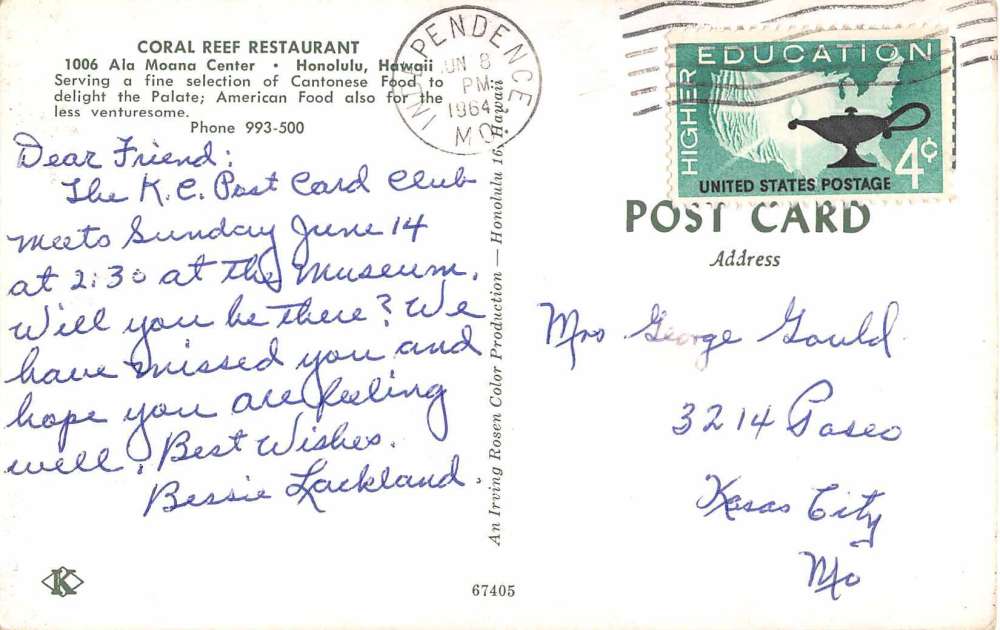 CORAL REEF RESTAURANT
1006 Ala Moana Center • Honolulu, Hawaii
Serving a fine selection of Cantonese Food to
delight the Palate; American Food also for the
less venturesome.
Phone 993-500
Dear Friend:
The K.C. Post Card Club
meets Sunday June 14
at 2:30 at the museum.
Will you be there? We
have missed you and
hope you are feeling
well. Best Wishes.
Bessie Lackland.
K
An Irving Rosen Color Production — Honolulu 16, Hawaii
67405
INDEPENDENCE
JUN 8
PM
1964
MO.
HIGHER EDUCATION
4¢
UNITED STATES POSTAGE
POST CARD
Address
Mrs George Gould
3214 Paseo
Kasas City
Mo